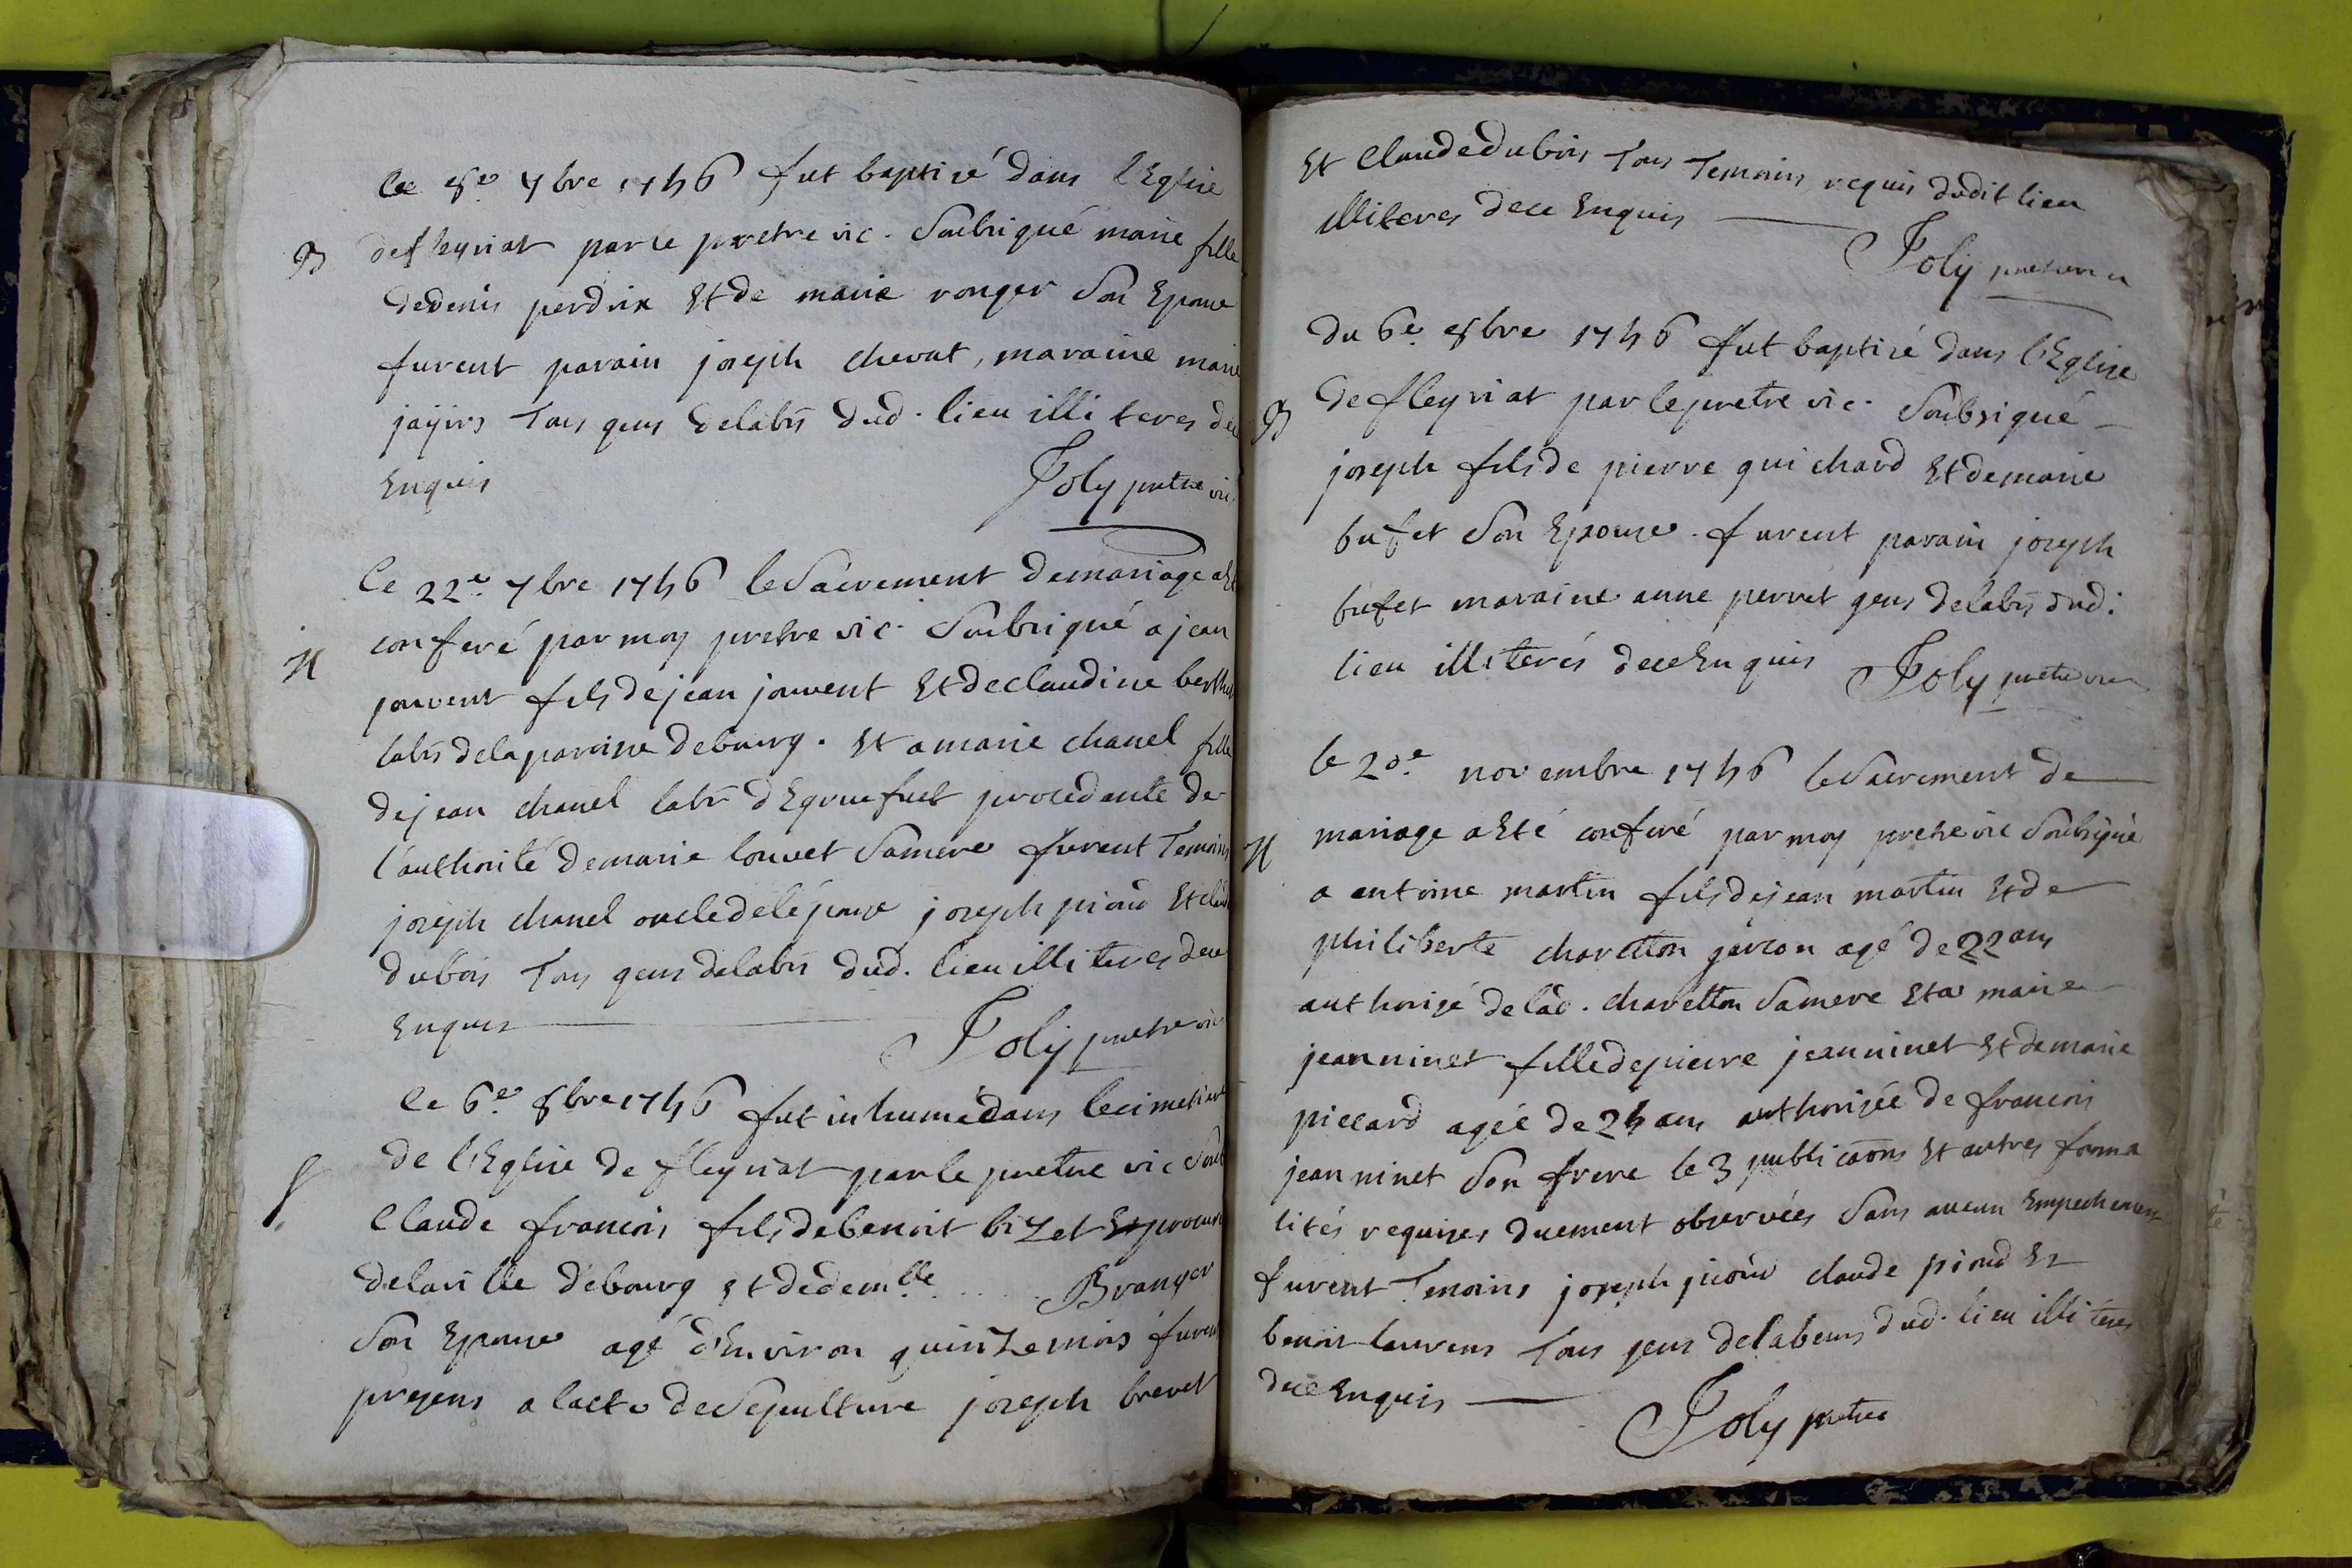 le 8e. 7bre 1746 fut baptisé dans l'Eglise
B
defleyriat par le pretre vic. Soubsigné marie fille
dedenis perdrix Et de marie ronger Son Epouse
furent parain joseph chevat, maraine marie
jayirs Tous gens delabr dud. lieu illiteres dece
Enquis
Joly pretre vic.
Le 22e. 7bre 1746 leSacrement demariage aEt
M
conferé par moy pretre vic. Soubsigné a jean
jouvent fils dejean jouvent Et declaudine berthet
labr dela paroisse debourg. Et a marie chanel fille
dejean chanel labr procedante de
l'authorité demarie louvet Samere furent Temoins
joseph chanel oncle delépouse joseph pioud Et claude
dubois Tous gens delabr dud. lieu illiteres dece
Enquis
Joly pretre vic
Le 6e. 8bre 1746 fut inhumé dans lecimetiere
S
de l'Eglise de fleyriat par le pretre vic Soub
Claude francois fils debenoit biZet Et procur
delaville debourg Et dedemlle ..... Branger
Son Epouse agé d'Environ quinZe mois furent
presens a lacte deSepulture joseph brevet
Et Claudedubois Tous Temoins requis dudit lieu
illiteres dece Enquis
Joly pretre vic
du 6e. 8bre 1746 fut baptisé dans l'Eglise
B
de fleyriat par lepretre vic. Soubsigné
joseph fils de pierre guichard Et demarie
bufet Son Epouse. furent parain joseph
bufet maraine anne perret gens delabr dud:
lieu illiterés dece Enquis
Joly pretre vic
le 20e. novembre 1746 leSacrement de
M
mariage a Eté conferé par moy pretre vic Soubsigné
a antoine martin fils dejean martin Et de
philiberte charetton garcon agé de 22 ans
authorisé delad. charetton Samere Et a marie
jeanninet fille depierre jeanninet Et demarie
piccard agée de 24 ans authorisée de francois
jeanninet Son frere le 3 publicaons Et autres forma
lités requises duement observées Sans aucun Empechement
furent Temoins joseph pioud claude pioud Et
benoit laurens Tous gens delabeurs dud. lieu illiteres
dece Enquis
Joly pretre